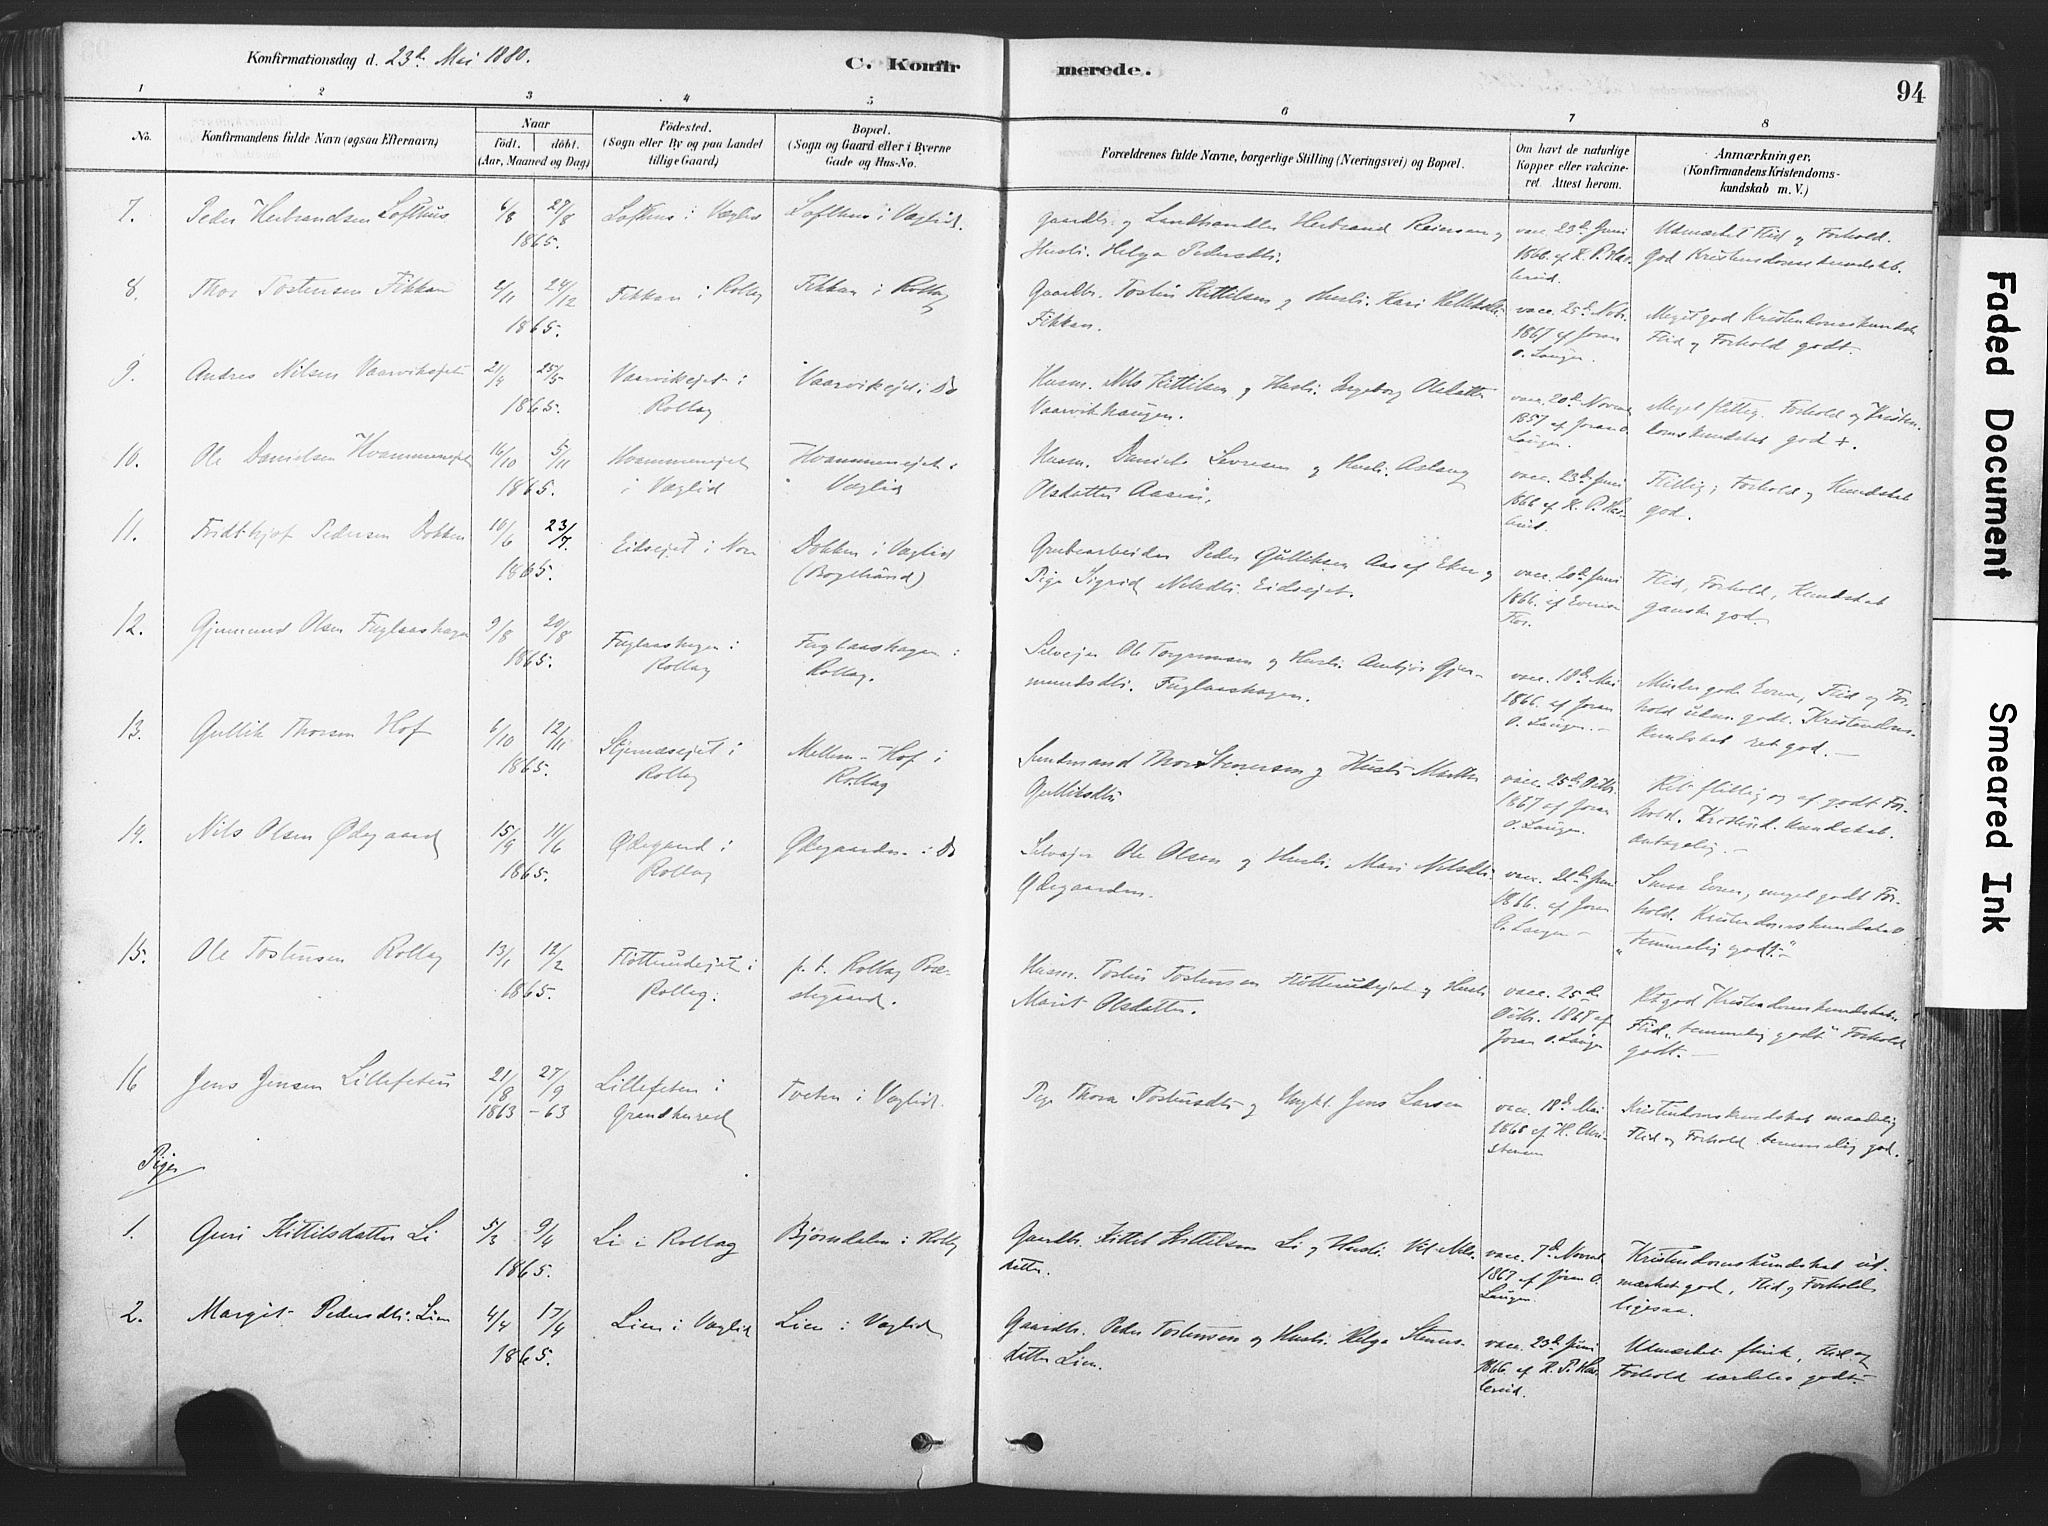 Konfirmationsdag d. 23de Mai 1880.
C. Konfir
merede.
94
1 2 3 4 5 6 7 8
No.
Konfirmandens fulde Navn (ogsaa Efternavn)
Naar
födt. döbt.
(Aar, Maaned og Dag)
Födested.
(Sogn eller By og paa Landet
tillige Gaard)
Bopæl.
(Sogn og Gaard eller i Byerne
Gade og Hus-No.
Forældrenes fulde Navne, borgerlige Stilling (Næringsvei) og Bopæl.
Om havt de naturlige
Kopper eller vakcine-
ret. Attest herom.
Anmærkninger.
(Konfirmandens Kristendoms-
kundskab m. V.)
7. Peder Herbrandsen Lofthus
6/8 27/8
1865.
Lofthus i Væglid
Lofthus i Væglid.
Gaardbr. og Landhandler Herbrand Reiersen og
Husti. Helga Pedersdtr.
vacc. 23de Juni
1866 af K. P. Has-
lerud.
Udmærket Flid og Forhold.
God Kristendomskundskab.
8. Thor Tostensen Fikkan
2/11 24/12
1865.
Fikkan i Rollag
Fikkan i Rollag
Gaardbr. Tosten Kittilsen og Husti. Kari
Fikkan.
vacc. 25de Nobr.
1867 af Joran
O. Laugen.
Meget god Kristendomskundsk.
Flid og Forhold godt.
9. Andres Nilsen Vaarvikejet
21/4 25/5
1865.
Vaarvikejet i
Rollag
Vaarvikejet i Do
Husm. Nils Kittilsen og Husti. Ingeborg Olsdatter
Vaarvikhaugen.
vacc. 20de Novemb.
1857 af Joran O.
Laugen.
Meget flittig. Forhold og Kristen-
domskundskab god +.
10. Ole Danielsen Hvammenejet
16/10 5/11
1865.
Hvammenejet
i Væglid
Hvammenejet i
Væglid
Husm. Daniel Sevresen og Husti. Aslaug
Olsdatter
vacc. 23de Juni
1866 af K. P. Has-
lerud.
Flittig; Forhold og Kundskab
god.
11. Fridthjof Pedersen Dokken
10/6 23/7
1865.
Eidsejet i Nore
Dokken i Væglid
(Bogstrand)
Grubearbeider Peder Gulliksen Aas af Eker og
Pige Sigrid Nilsdtr. Eidsejet.
vacc. 20de Juni
1866. af Even
Flid, Forhold, Kundskab
ganske god.
12. Gjermund Olsen Fuglaashagen
9/8 20/8
1865.
Fuglaashagen i
Rollag
Fuglaashagen i
Rollag.
Selvejer Ole Torgrimsen og Husti. Ambjør Gjer-
mundsdtr. Fuglaashagen.
vacc. 18de Mai
1866. af Joran
O. Laugen. –
Mindre gode Evner, Flid og For-
hold udm. godt. Kristendoms-
kundskab ret god. –
13. Gullik Thorsen Hof
6/10 12/11
1865.
Stjernæsejet i
Rollag
Mellem-Hof i
Rollag
Sundmand Thor Stenersen og Husti Marthe
Gulliksdtr.
vacc. 25de Oktbr.
1867 af Joran
O. Laugen.
Ret flittig og af godt For-
hold. Kristend. kundskab.
antagelig. –
14. Nils Olsen Ødegaard
15/9 11/6
1865.
Ødegaard i
Rollag
Ødegaarden i Do
Selvejer Ole Olsen og Husti. Mari Nilsdtr.
Ødegaarden.
vacc. 22de Juni
1866. af Joran
O. Laugen –
Smaa Evner, meget godt For-
hold. Kristendomskundskab
"temmelig godt" –
15. Ole Tostensen Rollag
13/1 12/2
1865.
Fløtterudejet i
Rollag.
p. t. Rollag Præ-
stegaard.
Husm. Tosten Tostensen Fløtterudejet og Husti
Marit Olsdatter.
vacc. 25de
Oktbr. 1867 af
Joran O. Laugen
Ret god Kristendomskundskab.
Flid "temmelig godt" Forhold
godt. –
16 Jens Jensen Lillefeten
21/8 27/9
1863 – 63
Lillefeten i
Grandherred
Tveten i Væglid.
Pige Thora Tostensdtr. og Ungk. Jens Larsen
vacc. 18de Mai
1868 af H. Chri-
stensen
Kristendomskundskab maadelig
Flid og Forhold temmelig god.
Piger
1. Guri Kittilsdatter Li
5/3 9/4
1865.
Li i Rollag
Bjørndalen i Rollag
Gaardbr. Kittil Kittilsen Li og Husti. Nils-
datter.
vacc. 7de Novemb.
1867 af Joran O.
Laugen.
Kristendomskundskab ud-
mærket god, Flid og Forhold
ligesaa.
2. Margit Pedersdtr. Lien
4/4 17/4
1865.
Lien i Væglid
Lien i Væglid
Gaardbr. Peder Tostensen og Husti. Helga Steners-
datter Lien.
vacc. 23de Juni
1866 af K. P. Has-
lerud.
Udmærket flink, Flid og
Forhold særdeles godt.
Faded Document
Smeared Ink